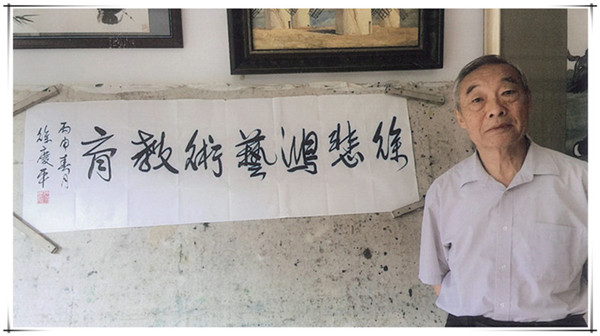 徐悲鸿藝術教育
丙申春月
徐慶平